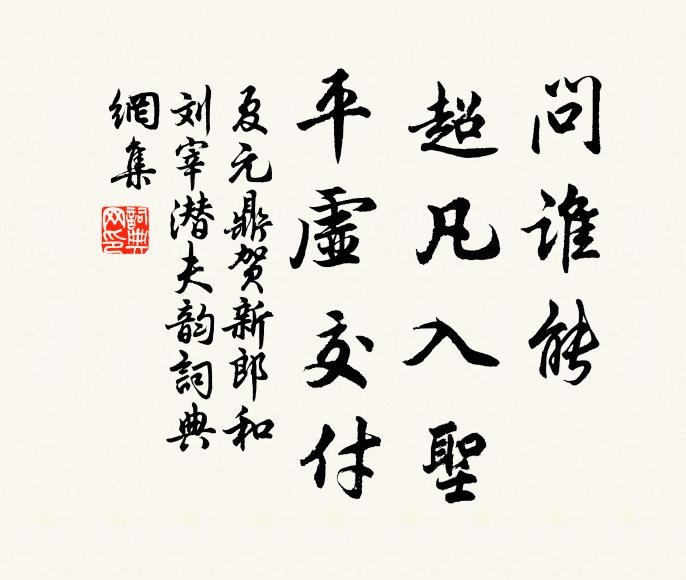 问谁能
超凡入聖
平虚交付
夏元鼎贺新郎和
刘宰潜夫韵詞典
網集
詞典网印